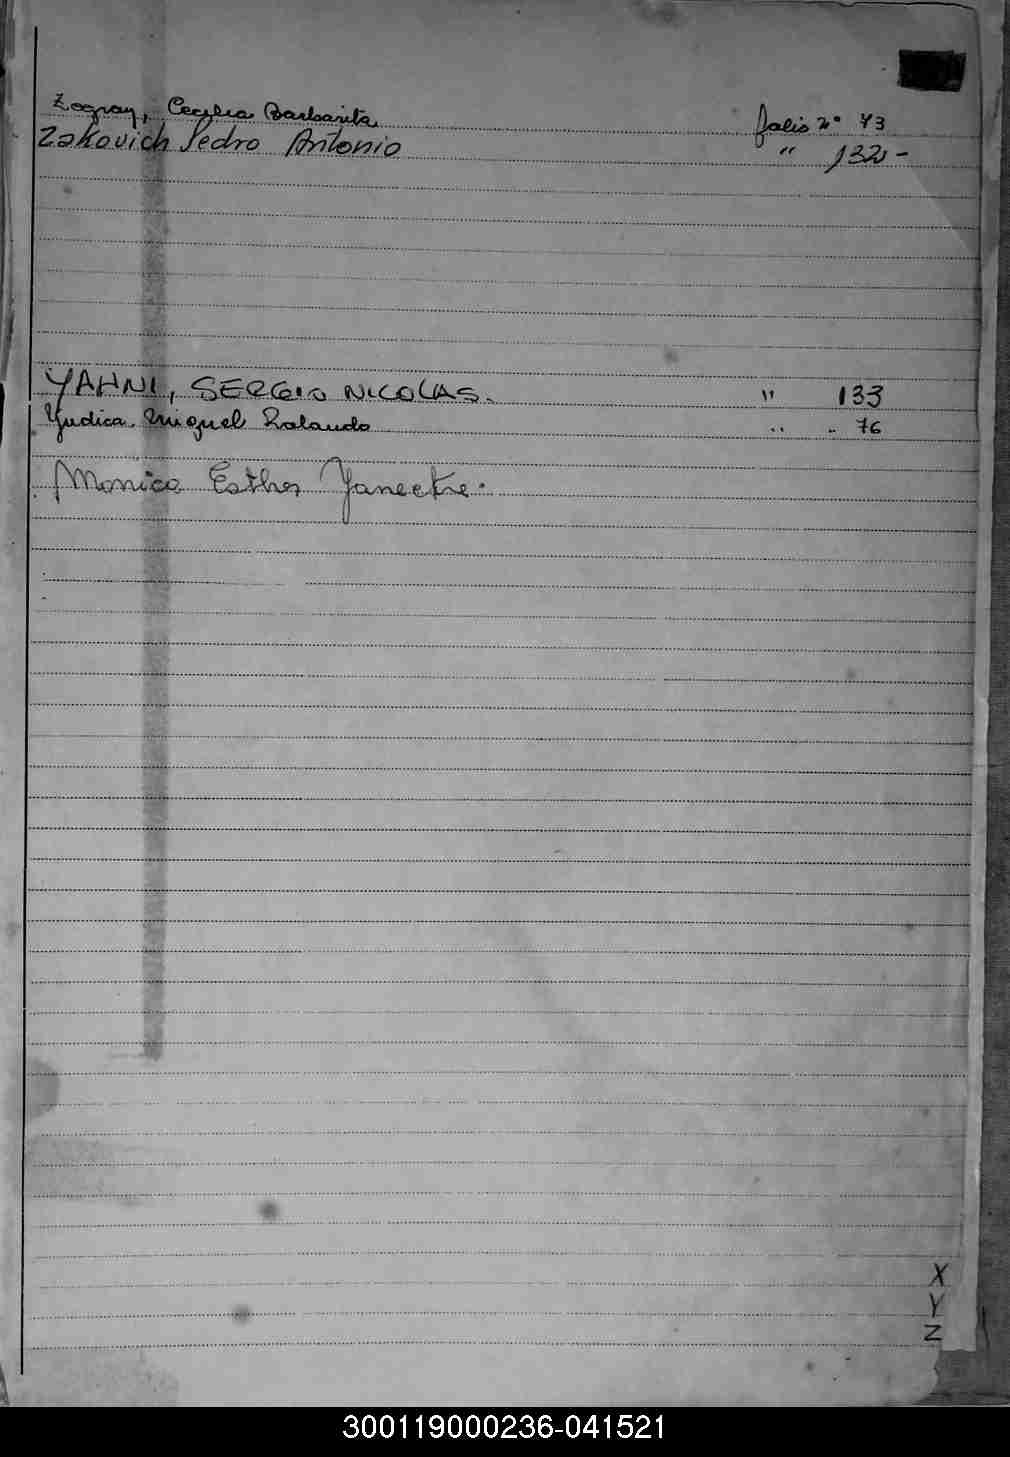 Zogray, Cecilia Barbarita folio nº 73
Zakovich Pedro Antonio " 132 -
YAHNI, SERGIO NICOLAS. " 133
Yudica Miguel Rolando " " 76
Monica Esther
X
Y
Z
300119000236-041521